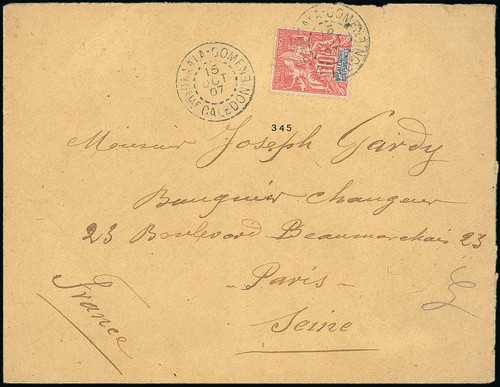 KAALA-GOMEN
15
OCT
07
NLLE CALEDONIE
KAALA-GOMEN
15
10
345
Monsieur Joseph Gardy
Banquier Changeur
23 Boulevard Beaumarchais 23
- Paris -
Seine
France